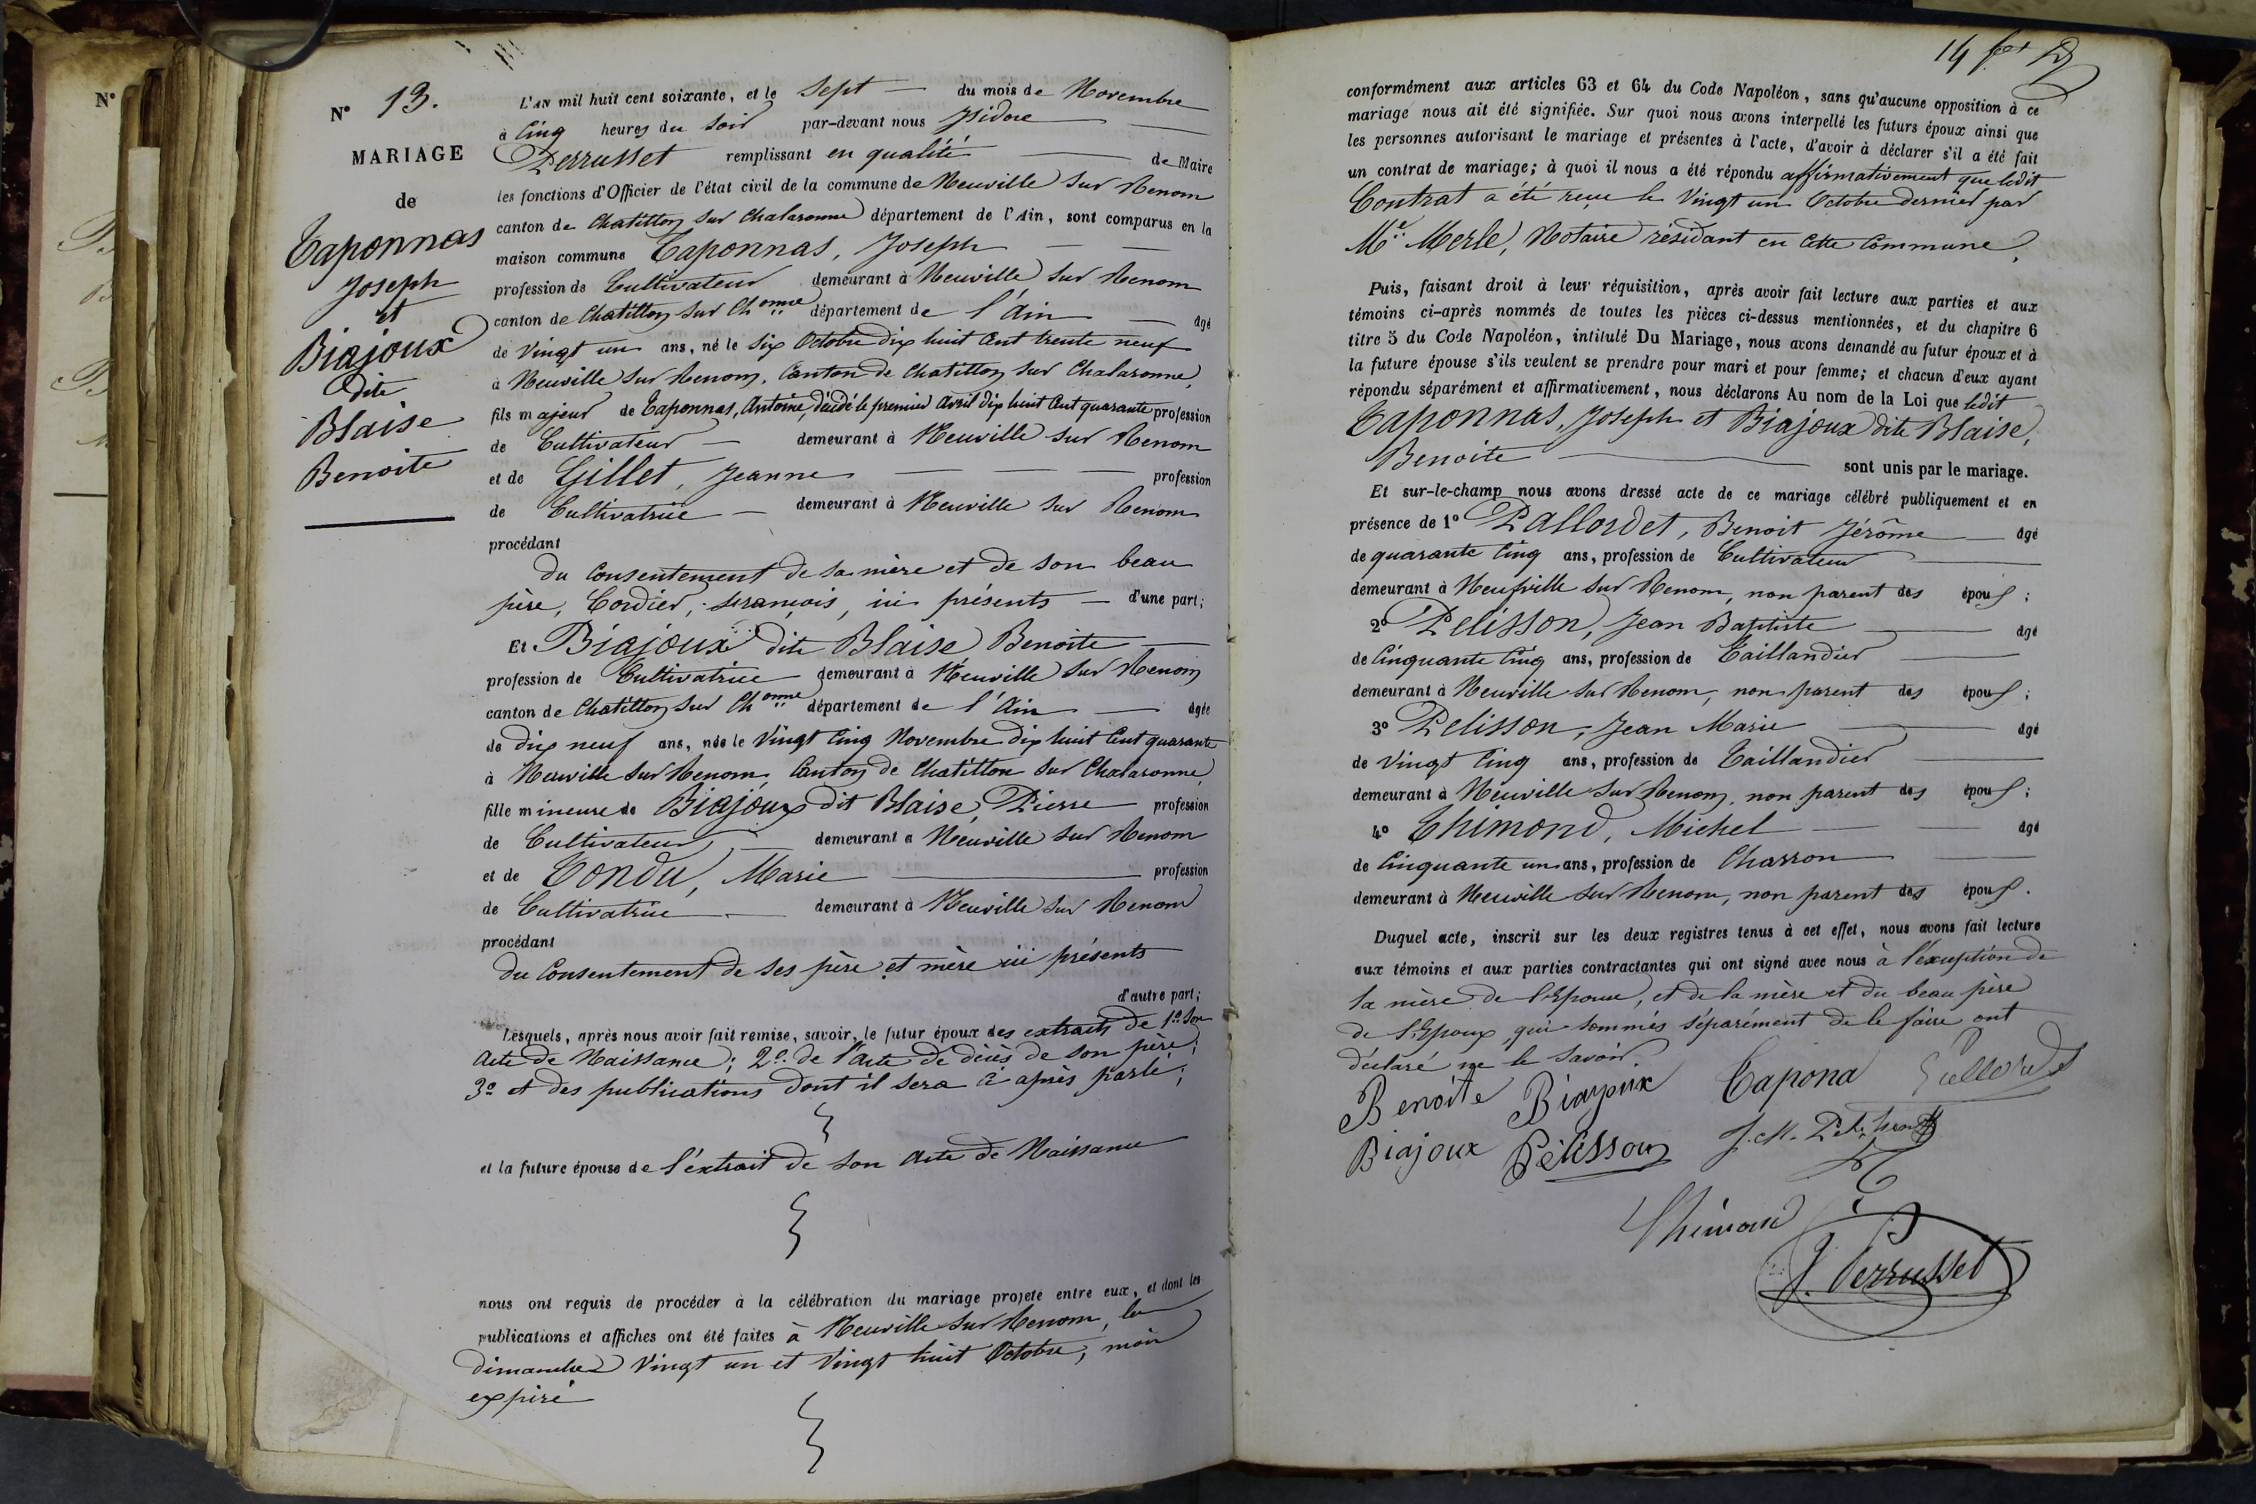 N° 13.
MARIAGE
de
Taponnas
Joseph
et
Biajoux
dite
Blaise
Benoite
L'AN mil huit cent soixante, et le Sept du mois de Novembre
à Cinq heures du Soir par-devant nous Isidore
Perrusset remplissant en qualité de Maire
les fonctions d'Officier de l'état civil de la commune de Neuville sur Renom
canton de Chatillon sur Chalaronne département de l'Ain, sont comparus en la
maison commune Taponnas, Joseph
profession de Cultivateur demeurant à Neuville sur Renom
canton de Chatillon sur Ch onne département de l'Ain âgé
de Vingt un ans, né le six Octobre dix huit Cent trente neuf
à Neuville sur Renom, Canton de Chatillon sur Chalaronne,
fils majeur de Taponnas, Antoine, décédé le premier Avril dix huit Cent quarante profession
de Cultivateur demeurant à Neuville sur Renom
et de Gillet, Jeanne profession
de Cultivatrice demeurant à Neuville sur Renom
procédant
du Consentement de sa mère et de son beau
père, Cordier, françois, ici présents d'une part;
Et Biajoux dite Blaise Benoite
profession de Cultivatrice demeurant à Neuville sur Renom
canton de Chatillon sur Ch onne département de l'Ain âgée
de dix neuf ans, née le Vingt Cinq Novembre dix huit Cent quarante
à Neuville sur Renom Canton de Chatillon sur Chalaronne,
fille mineure de Biajoux dit Blaise, Pierre profession
de Cultivateur demeurant à Neuville sur Renom
et de Tondu, Marie profession
de Cultivatrice demeurant à Neuville sur Renom
procédant
du Consentement de ses père et mère ici présents
d'autre part;
Lesquels, après nous avoir fait remise, savoir, le futur époux des extraits de 1° son
Acte de Naissance; 2° de l'Acte de décès de son père;
3° et des publications dont il sera ci après parlé;
et la future épouse de l'extrait de son Acte de Naissance
nous ont requis de procéder à la célébration du mariage projeté entre eux, et dont les
publications et affiches ont été faites à Neuville sur Renom, les
dimanches Vingt un et Vingt huit Octobre, mois
expiré
14
conformément aux articles 63 et 64 du Code Napoléon, sans qu'aucune opposition à ce
mariage nous ait été signifiée. Sur quoi nous avons interpellé les futurs époux ainsi que
les personnes autorisant le mariage et présentes à l'acte, d'avoir à déclarer s'il a été fait
un contrat de mariage; à quoi il nous a été répondu affirmativement que ledit
Contrat a été reçu le Vingt un Octobre dernier par
Me Merle, Notaire résidant en Cette Commune,
Puis, faisant droit à leur réquisition, après avoir fait lecture aux parties et aux
témoins ci-après nommés de toutes les pièces ci-dessus mentionnées, et du chapitre 6
titre 5 du Code Napoléon, intitulé Du Mariage, nous avons demandé au futur époux et à
la future épouse s'ils veulent se prendre pour mari et pour femme; et chacun d'eux ayant
répondu séparément et affirmativement, nous déclarons Au nom de la Loi que ledit
Taponnas, Joseph et Biajoux dite Blaise,
Benoite sont unis par le mariage.
Et sur-le-champ nous avons dressé acte de ce mariage célébré publiquement et en
présence de 1° Pallordet, Benoit Jérôme âgé
de quarante Cinq ans, profession de Cultivateur
demeurant à Neufville sur Renom, non parent des époux;
2° Pelisson, Jean Baptiste âgé
de Cinquante Cinq ans, profession de Taillandier
demeurant à Neuville sur Renom, non parent des époux;
3° Pelisson, Jean Marie âgé
de Vingt Cinq ans, profession de Taillandier
demeurant à Neuville sur Renom, non parent des époux;
4° Thimond, Michel âgé
de Cinquante un ans, profession de Charron
demeurant à Neuville sur Renom, non parent des époux.
Duquel acte, inscrit sur les deux registres tenus à cet effet, nous avons fait lecture
aux témoins et aux parties contractantes qui ont signé avec nous à l'exception de
la mère de l'Epouse, et de la mère et du beau père
de l'Epoux, qui sommés séparément de le faire ont
déclaré ne le savoir
Benoite Biajoux Tapona
Biajoux Pélisson
Thimond
J. Perrusset